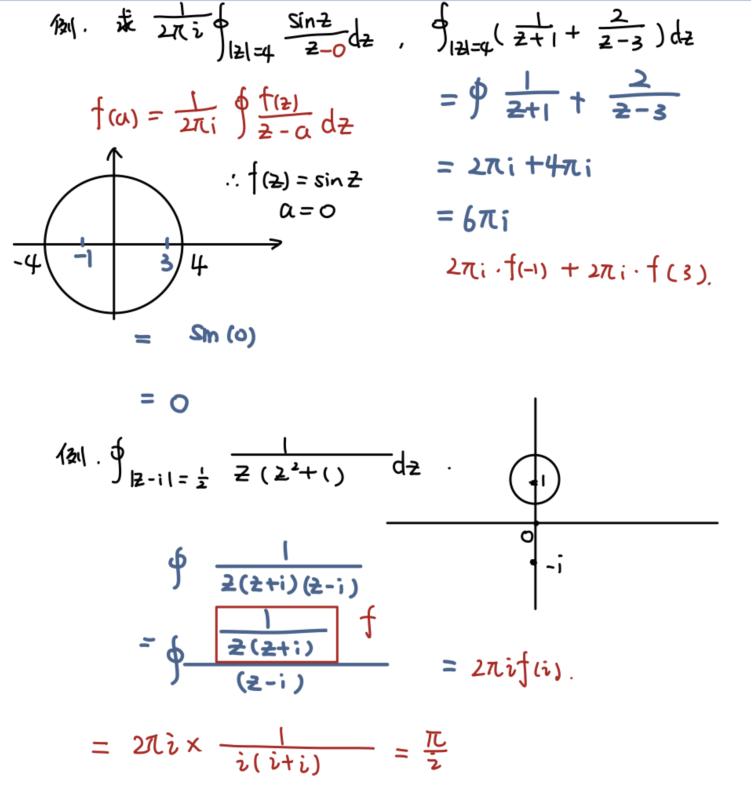 例. 求 \frac{1}{2πi} ∮_{|z|=4} \frac{sinz}{z-0} dz , ∮_{|z|=4} ( \frac{1}{z+1} + \frac{2}{z-3} ) dz
f(a) = \frac{1}{2πi} ∮ \frac{f(z)}{z-a} dz
∴ f(z) = sinz
a = 0
-4 -1 3 4
= sin(0)
= 0
= ∮ \frac{1}{z+1} + \frac{2}{z-3}
= 2πi + 4πi
= 6πi
2πi · f(-1) + 2πi · f(3).
例. ∮_{|z-i|=\frac{1}{2}} \frac{1}{z(z²+1)} dz .
i
0
-i
∮ \frac{1}{z(z+i)(z-i)}
= ∮ \frac{\frac{1}{z(z+i)}}{(z-i)} f = 2πi f(i).
= 2πi × \frac{1}{i(i+i)} = \frac{π}{i}